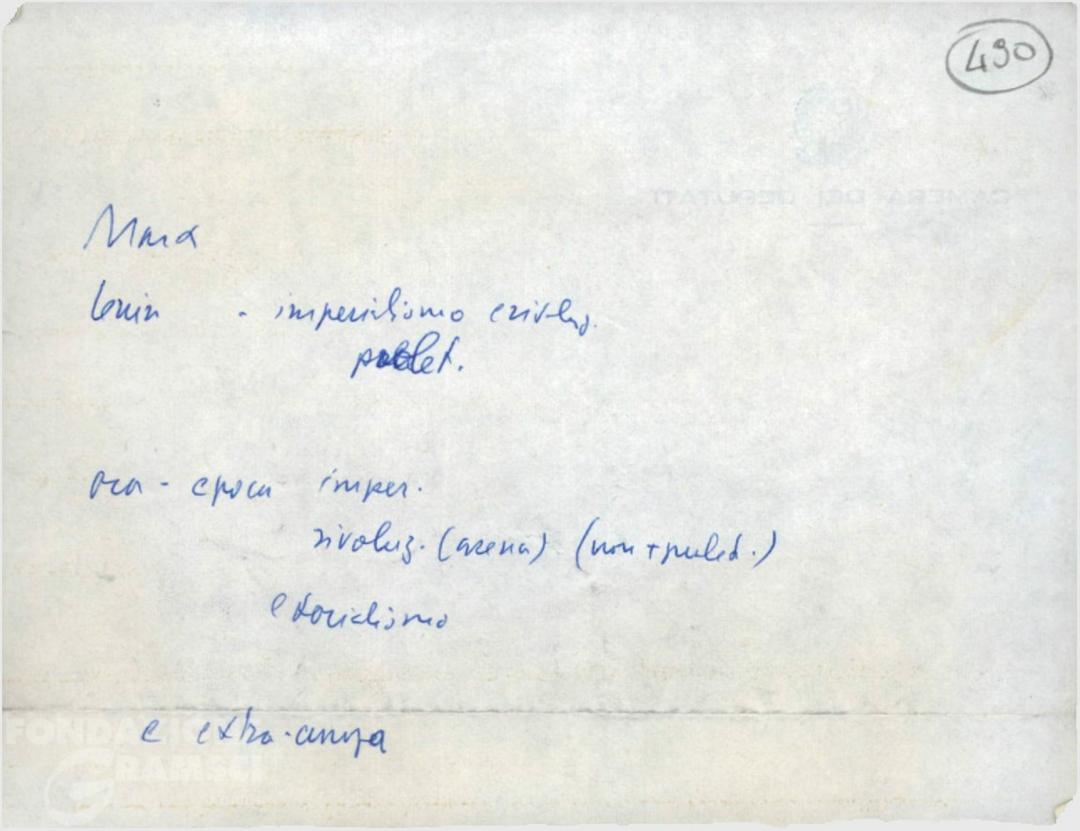 490
CAMERA DEI DEPUTATI
Marx
Lenin - imperialismo e rivoluz.
prolet.
ora - epoca imper.
rivoluz. (arena) (non + prolet.)
e socialismo
e extra-europa
FONDAZIONE
GRAMSCI